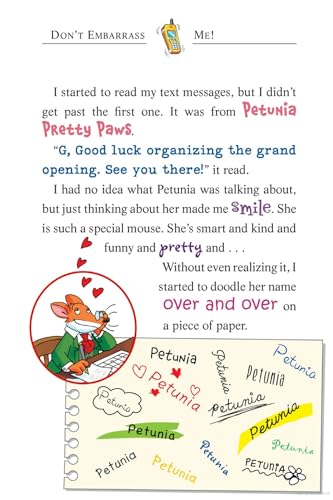 DON'T EMBARRASS ME!
I started to read my text messages, but I didn't
get past the first one. It was from Petunia
Pretty Paws.
"G, Good luck organizing the grand
opening. See you there!" it read.
I had no idea what Petunia was talking about,
but just thinking about her made me smile. She
is such a special mouse. She's smart and kind and
funny and pretty and . . .
Without even realizing it, I
started to doodle her name
over and over on
a piece of paper.
Petunia
Petunia
Petunia
Petunia
Petunia
Petunia
Petunia
Petunia
Petunia
Petunia
Petunia
Petunia
Petunia
Petunia